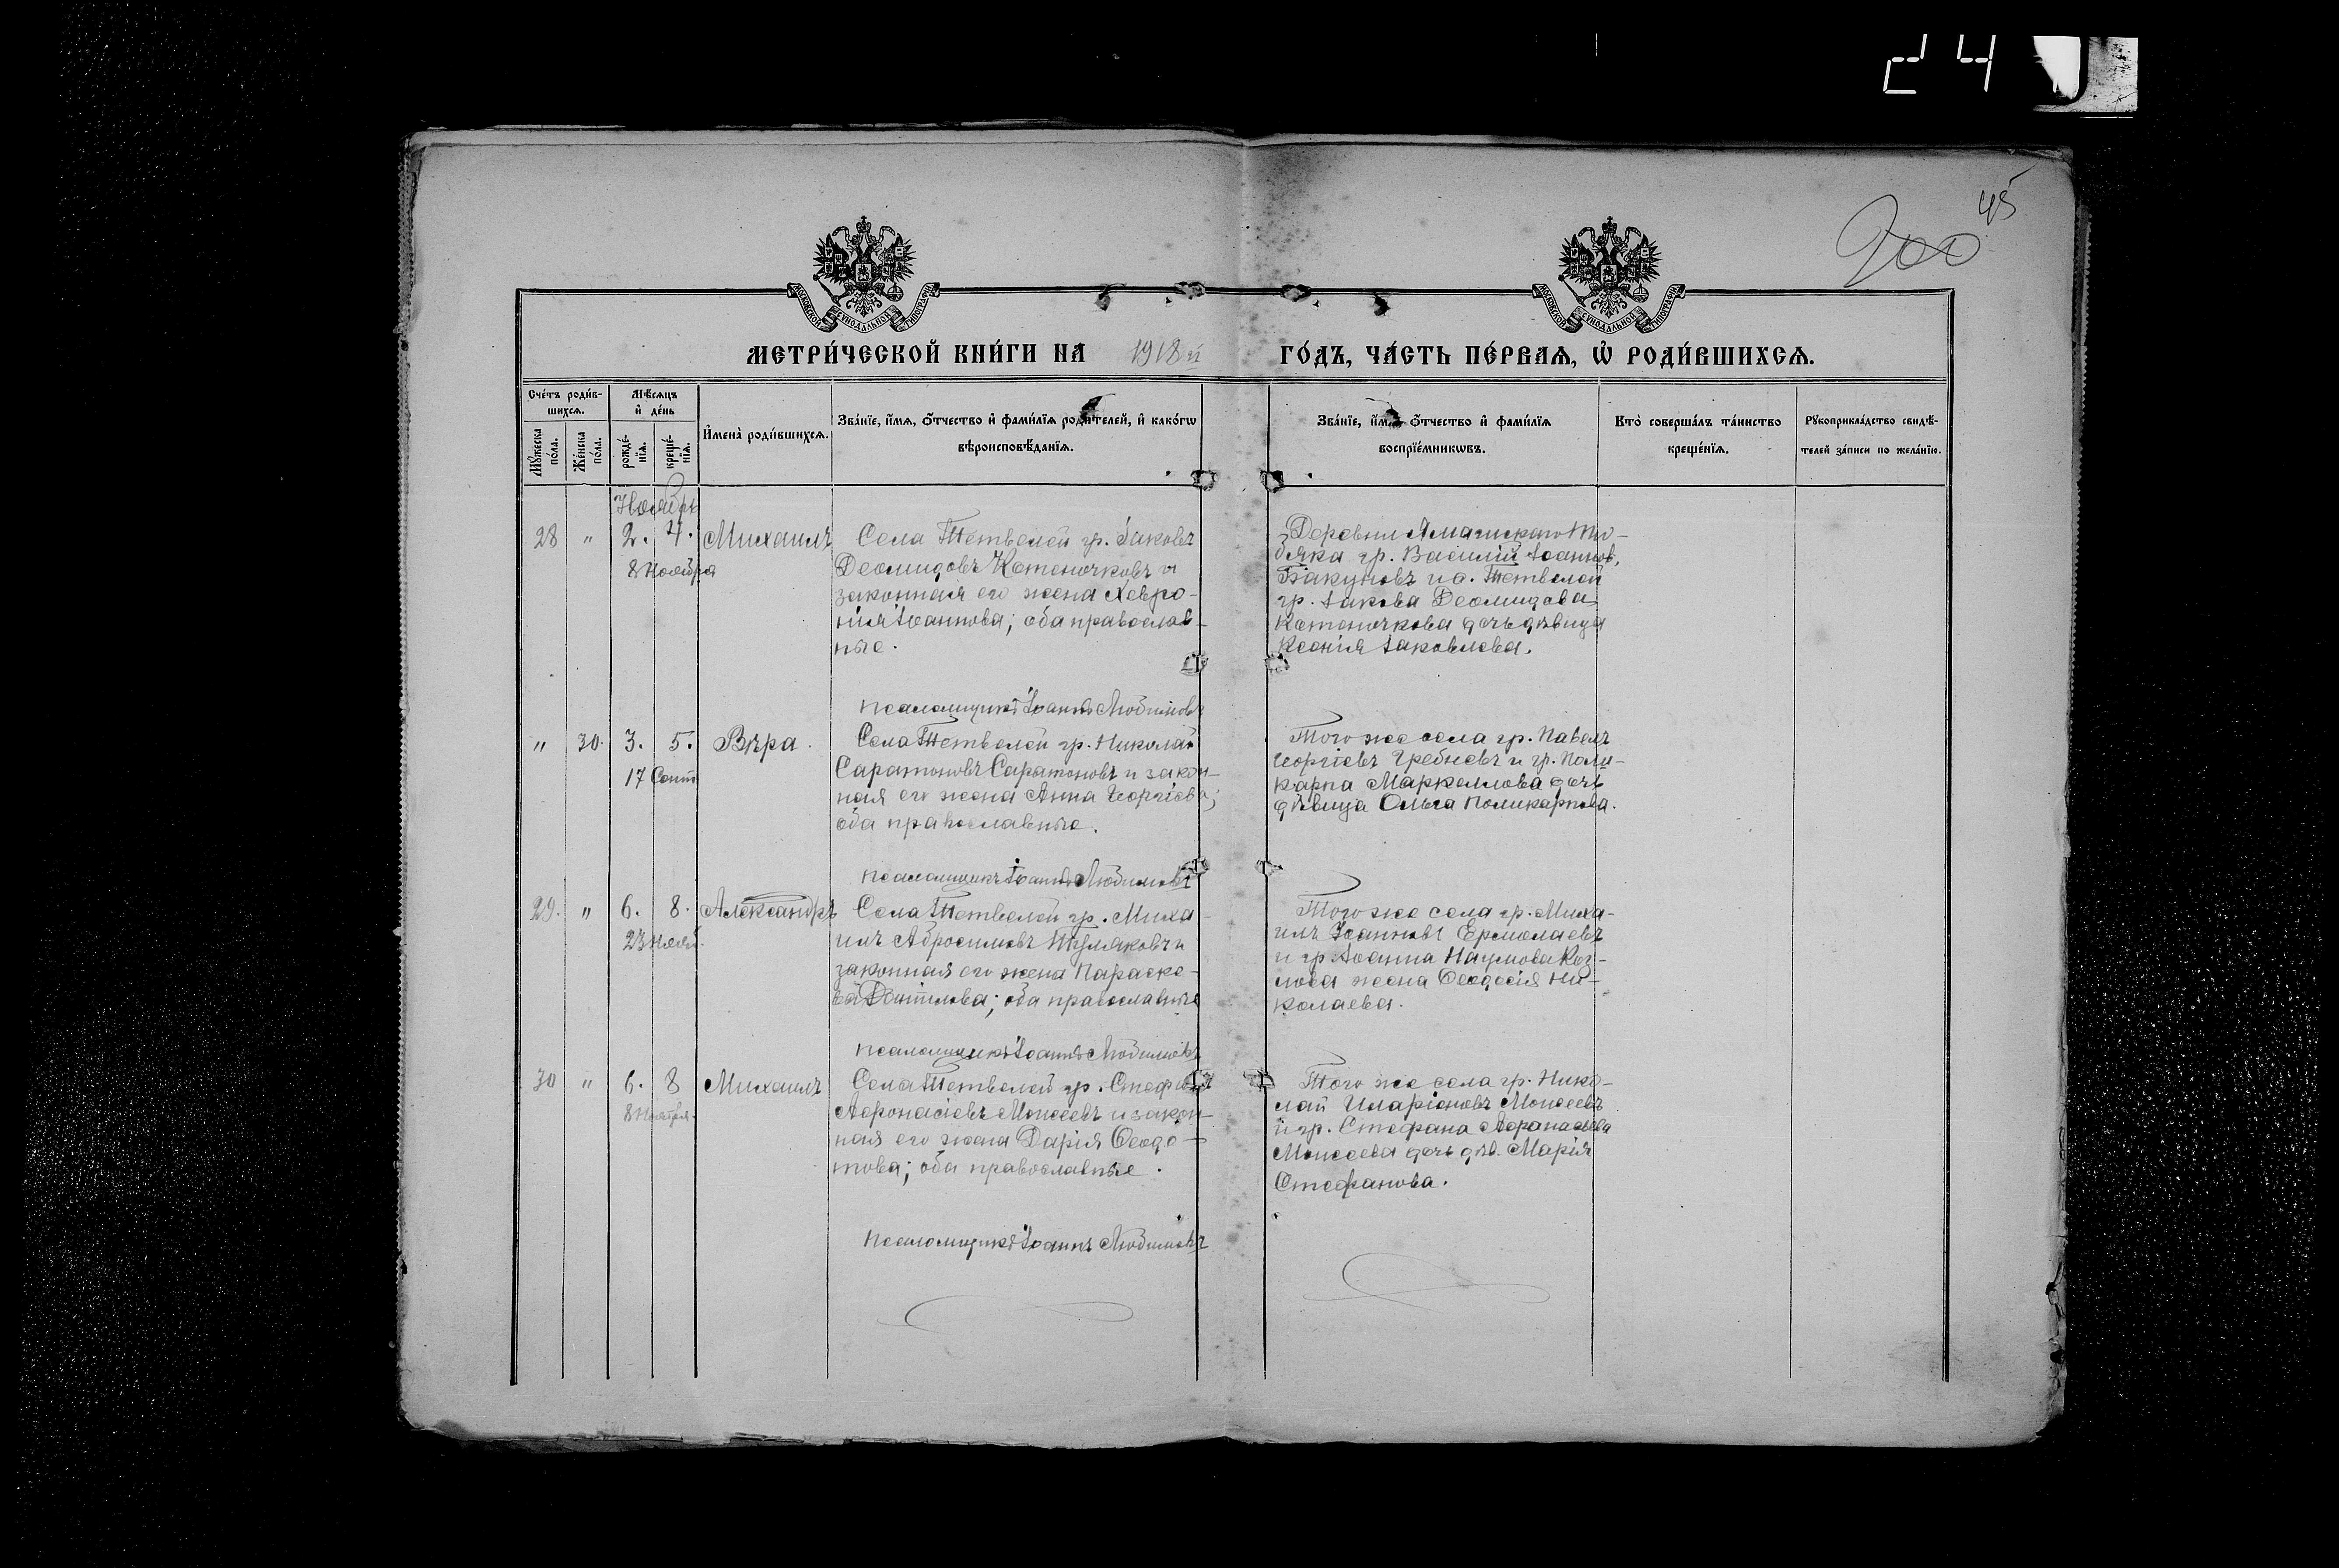 24
45
200
МОСКОВСКОЙ СѴНОДАЛЬНОЙ ТИПОГРАФІИ
МОСКОВСКОЙ СѴНОДАЛЬНОЙ ТИПОГРАФІИ
МЕТРИ́ЧЕСКОЙ КНИ́ГИ НА 1918й ГО́ДЪ, ЧА́СТЬ ПЕ́РВАЯ, Ѡ҆ РОДИ́ВШИХСЯ.
Сче́тъ роди́в-
шихся.
Мѣ́сяцъ
и҆ де́нь
Мꙋ́жеска
по́ла.
Же́нска
по́ла.
рожде́-
нїя.
креще́-
нїя.
И҆мена̀ роди́вшихся.
Зва́нїе, и҆́мя, ѻ҆́тчество и҆ фами́лїя роди́телей, и҆ како́гѡ
вѣроисповѣ́данїя.
Зва́нїе, и҆́мя, ѻ҆́тчество и҆ фами́лїя
воспрїе́мникѡвъ.
Кто̀ соверша́лъ та́инство
креще́нїя.
Рꙋкоприкла́дство свидѣ́-
телей за́писи по жела́нїю.
Ноябрь
28 " 2. 4. Михаилъ
8 Ноября
Села Тетвелей гр. Іаковъ
Деомидовъ Котеночковъ и
законная его жена Хевро-
нія Іоаннова; оба православ-
ные.
Деревни
гр. Василій Іоаннов.
Бакуновъ и с. Тетвелей
гр. Іакова Деомидова
Котеночкова дочь дѣвица
Ксенія Іаковлева.
псаломщикъ Іоаннъ Любимовъ
" 30. 3. 5. Вѣра.
17 Сент
Села Тетвелей гр. Николай
Саратоновъ Саратоновъ и закон-
ная его жена Анна Георгіева;
оба православные.
Того же села гр. Павелъ
Георгіевъ Гребневъ и гр. Поли-
карпа Маркеллова дочь
дѣвица Ольга Поликарпова.
псаломщикъ Іоаннъ Любимовъ
29. " 6. 8. Александръ
23 Нояб.
Села Тетвелей гр. Миха-
илъ Абросимовъ Туляковъ и
законная его жена Параске-
ва оба православные
Того же села гр. Миха-
илъ Іоанновъ Ермолаевъ
и гр. Іоанна Наумова Коз-
лова жена Ѳеодосія Ни-
колаева.
псаломщикъ Іоаннъ Любимовъ
30 " 6. 8 Михаилъ
8 Ноября.
Села Тетвелей гр. Стефанъ
Аѳонасіевъ Моисеевъ и закон-
ная его жена Дарія Ѳеодо-
това; оба православные.
Того же села гр. Нико-
лай Иларіоновъ Моисеевъ
и гр. Стефана Аѳонасіева
Моисеева дочь дѣв. Марія
Стефанова.
псаломщикъ Іоаннъ Любимовъ